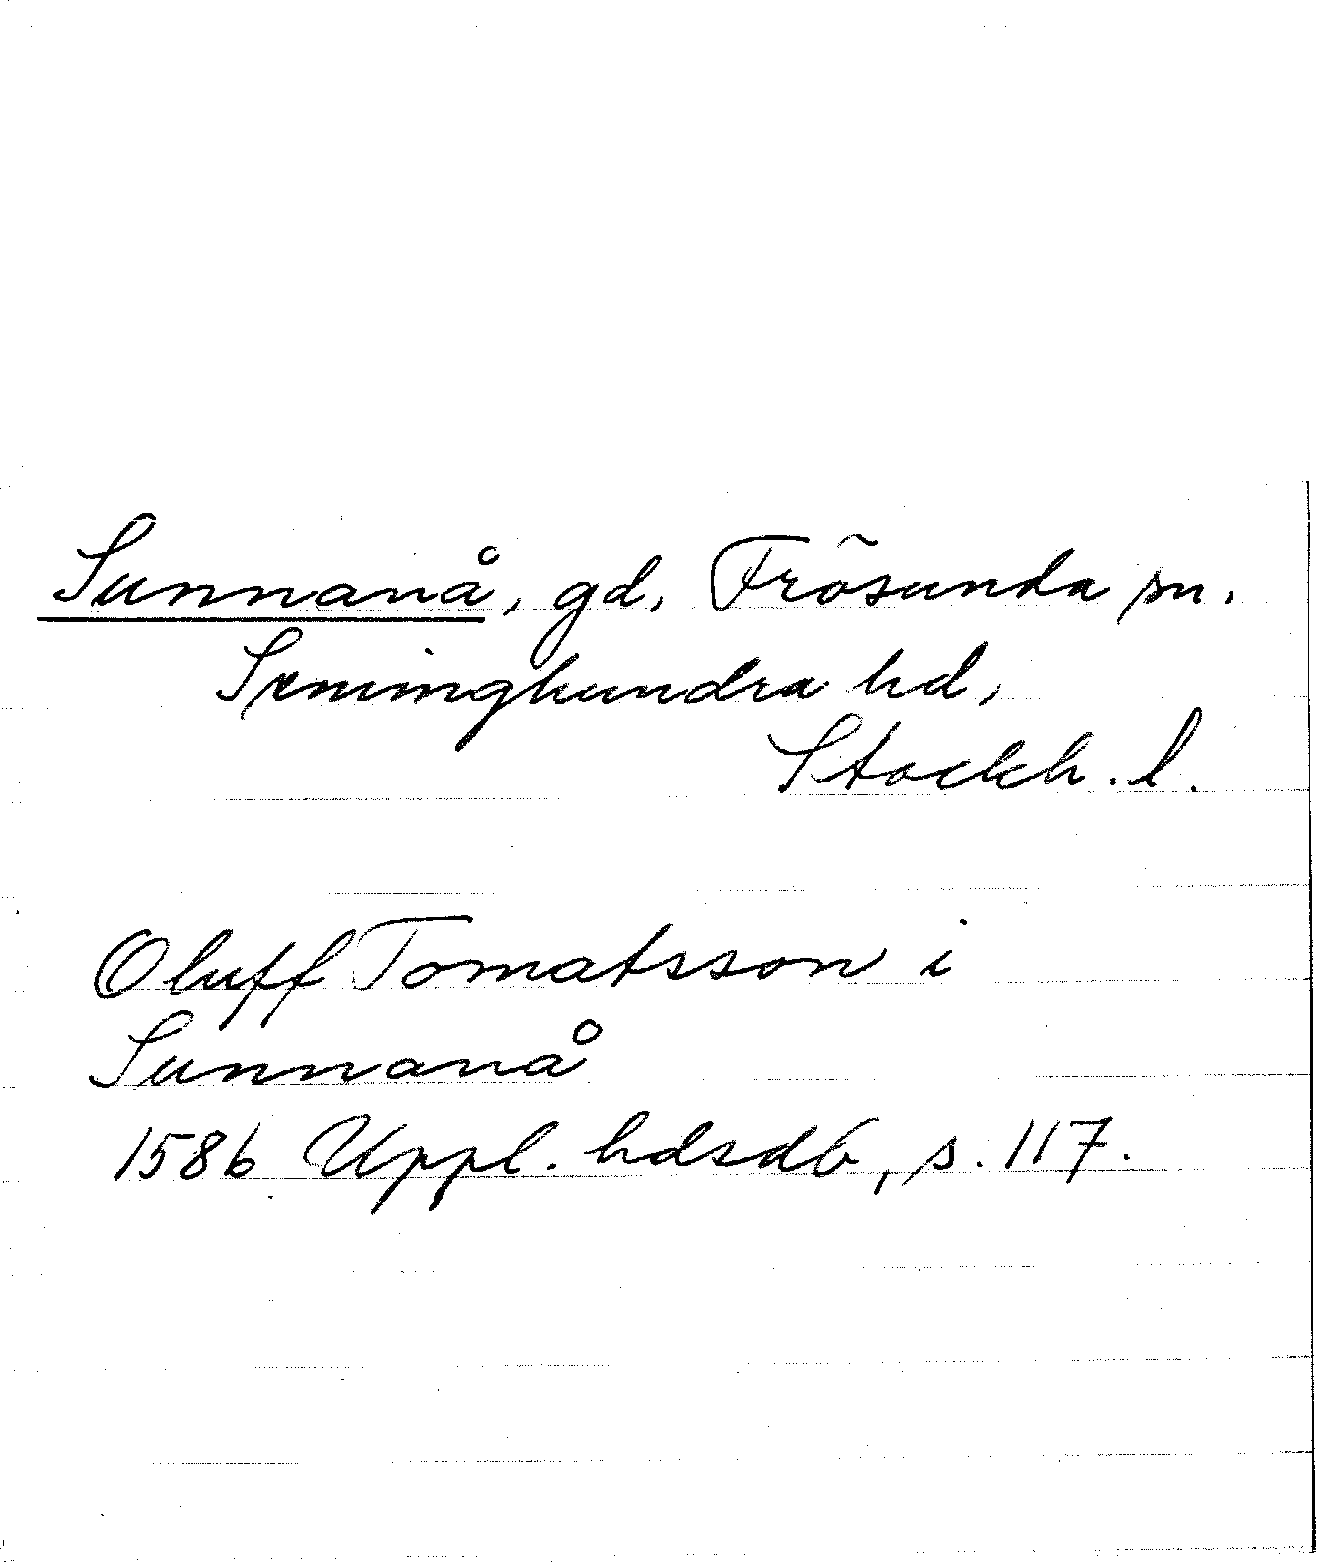 Sunnanå, gd, Frösunda sn.
Seminghundra hd,
Stockh. l.
Oluff Tomatsson i
Sunnanå
1586 Uppl. hdsdb, s. 117.